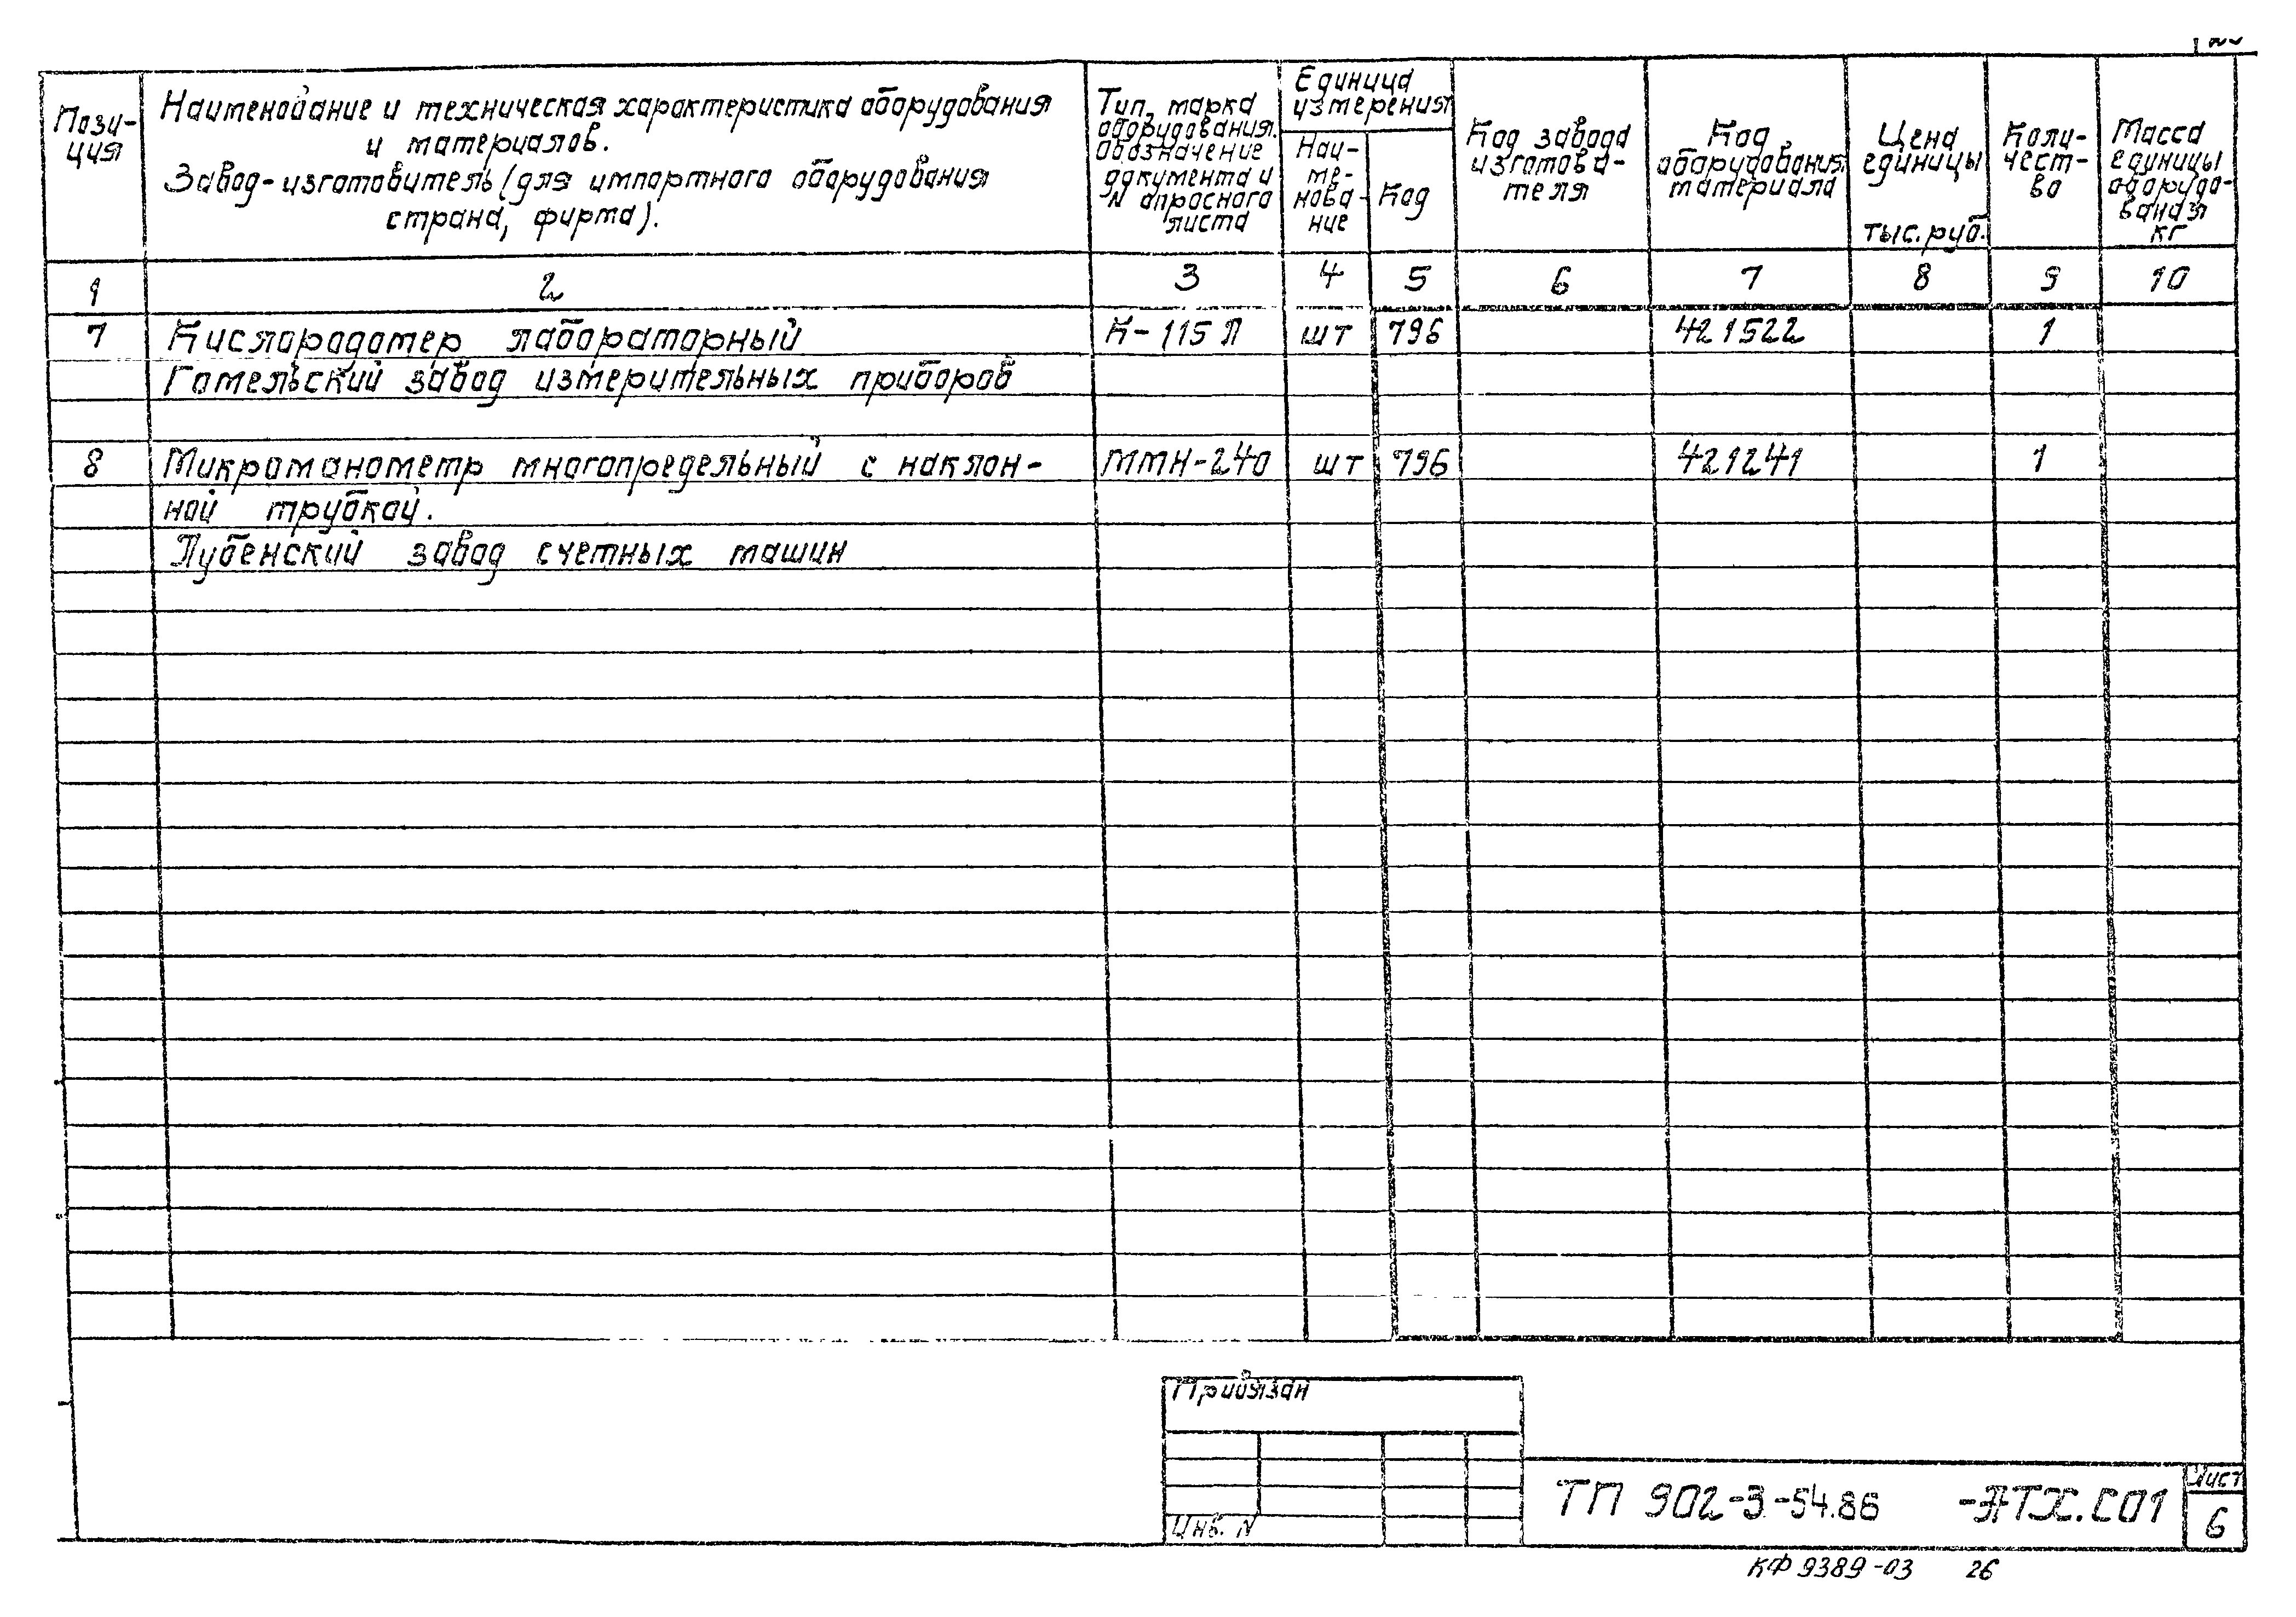 Пози-
ция
Наименование и техническая характеристика оборудования
и материалов.
Завод-изготовитель (для импортного оборудования
страна, фирма).
Тип, марка
оборудования.
Обозначение
документа и
N опросного
листа
Единица
измерения
Наи-
ме-
нова-
ние
Код
Код завода
изготови-
теля
Код
оборудования
материала
Цена
единицы
тыс. руб.
Коли-
чест-
во
Масса
единицы
оборудо-
вания
кг
1 2 3 4 5 6 7 8 9 10
7 Кислородомер лабораторный К-115 Л шт 796 421522 1
Гомельский завод измерительных приборов
8 Микроманометр многопредельный с наклон- ММН-240 шт 796 421241 1
ной трубкой.
Лубенский завод счетных машин
Привязан
Инв. N
ТП 902-3-54.86 -АТХ.СО1
Лист
6
КФ 9389-03 26